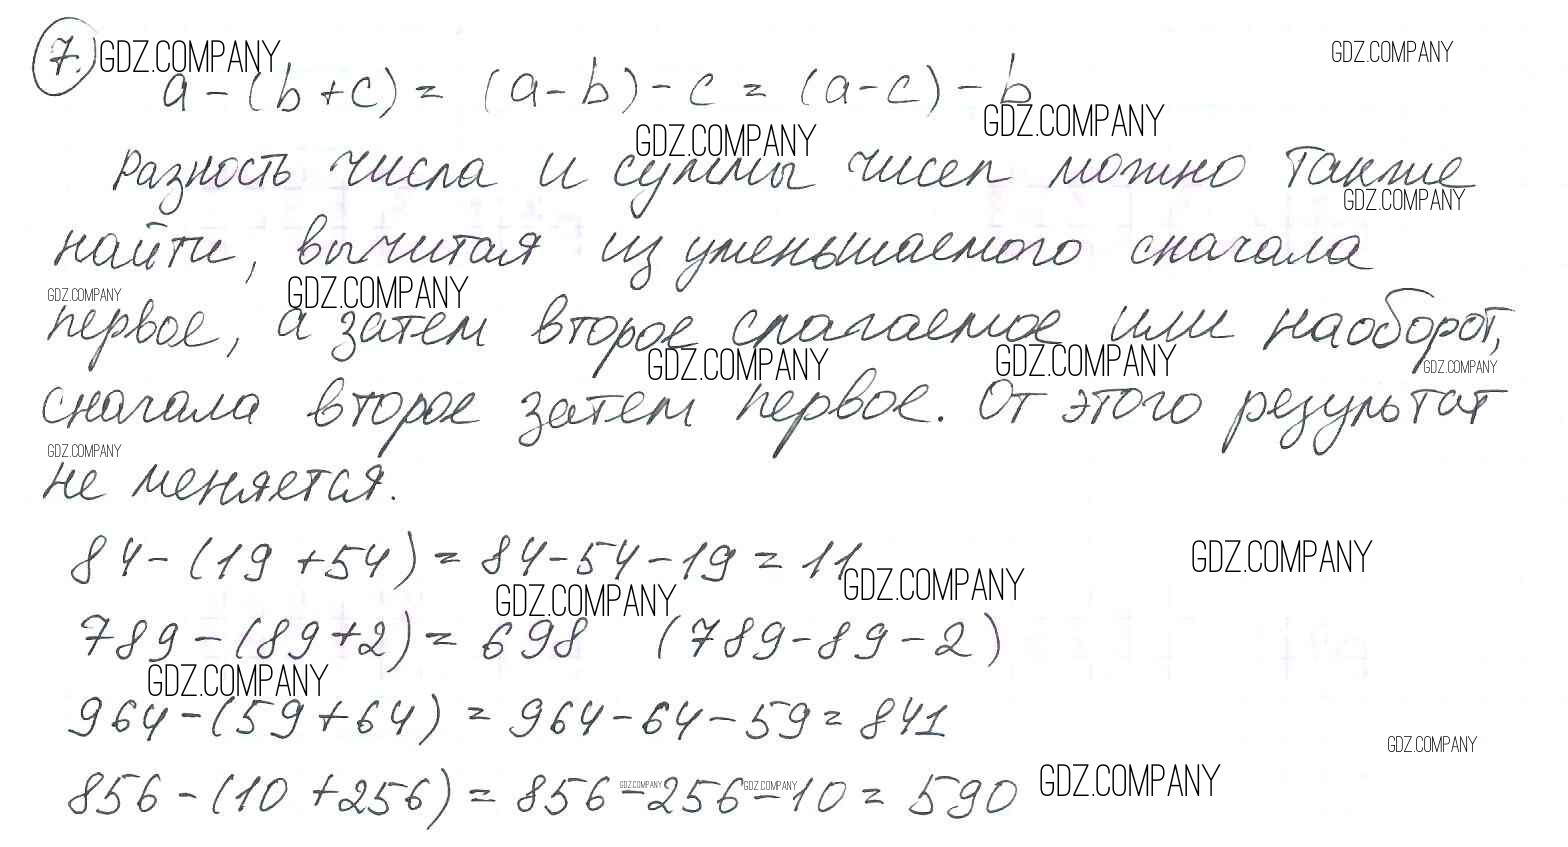 7. GDZ.COMPANY GDZ.COMPANY
a - (b + c) = (a - b) - c = (a - c) - b
GDZ.COMPANY GDZ.COMPANY
Разность числа и суммы чисел можно также
GDZ.COMPANY
найти, вычитая из уменьшаемого сначала
GDZ.COMPANY GDZ.COMPANY
первое, а затем второе слагаемое или наоборот,
GDZ.COMPANY GDZ.COMPANY GDZ.COMPANY
сначала второе затем первое. От этого результат
GDZ.COMPANY
не меняется.
84 - (19 + 54) = 84 - 54 - 19 = 11
GDZ.COMPANY GDZ.COMPANY GDZ.COMPANY
789 - (89 + 2) = 698 (789 - 89 - 2)
GDZ.COMPANY
964 - (59 + 64) = 964 - 64 - 59 = 841
GDZ.COMPANY
856 - (10 + 256) = 856 - 256 - 10 = 590
GDZ.COMPANY GDZ.COMPANY GDZ.COMPANY